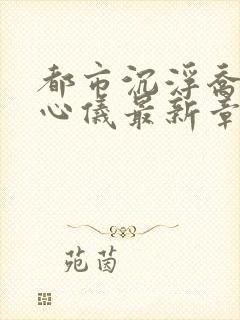 都市沉浮乔
心仪最新章
苑茵